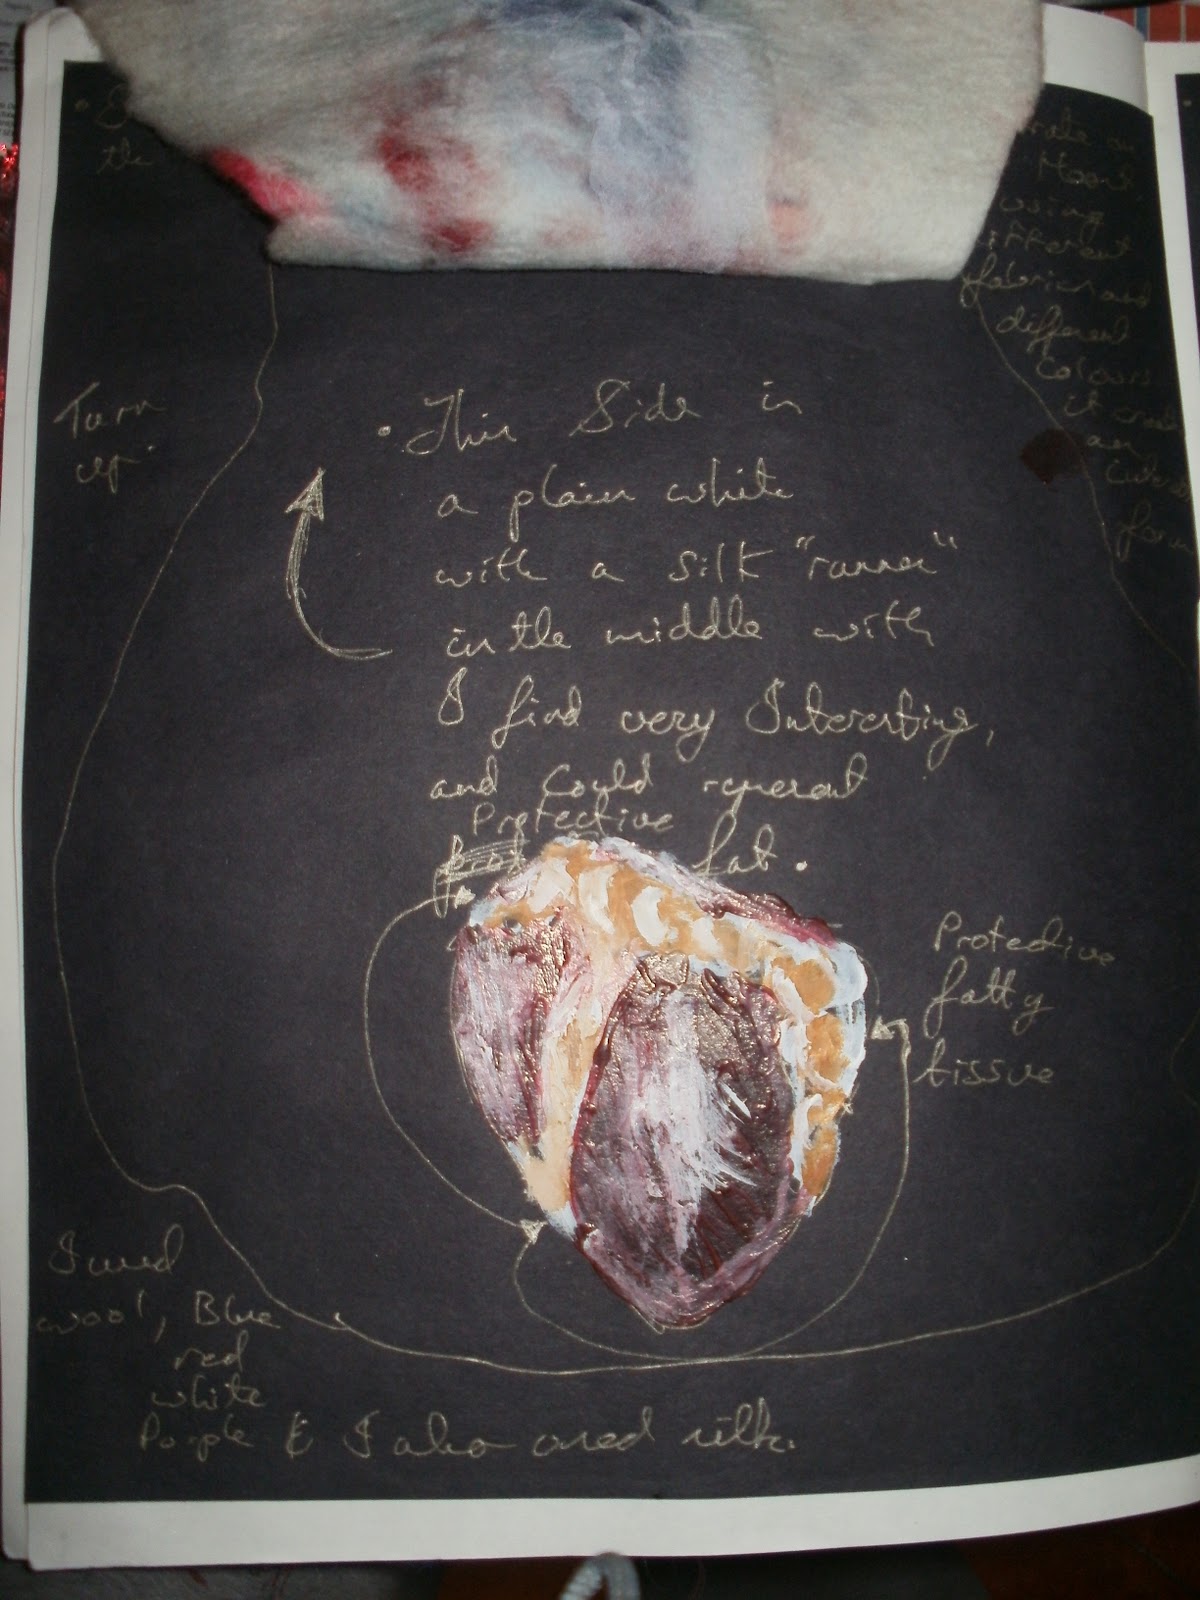 the
Heart
using
different
fabrics and
different
Colours
it
an
form
Turn
up
• This Side is
a plain white
with a silk "runner"
in the middle with
I find very Interesting,
and could represent
Protective
fat.
Protective
fatty
tissue
I used
wool, Blue
red
white
Purple & I also used silk.